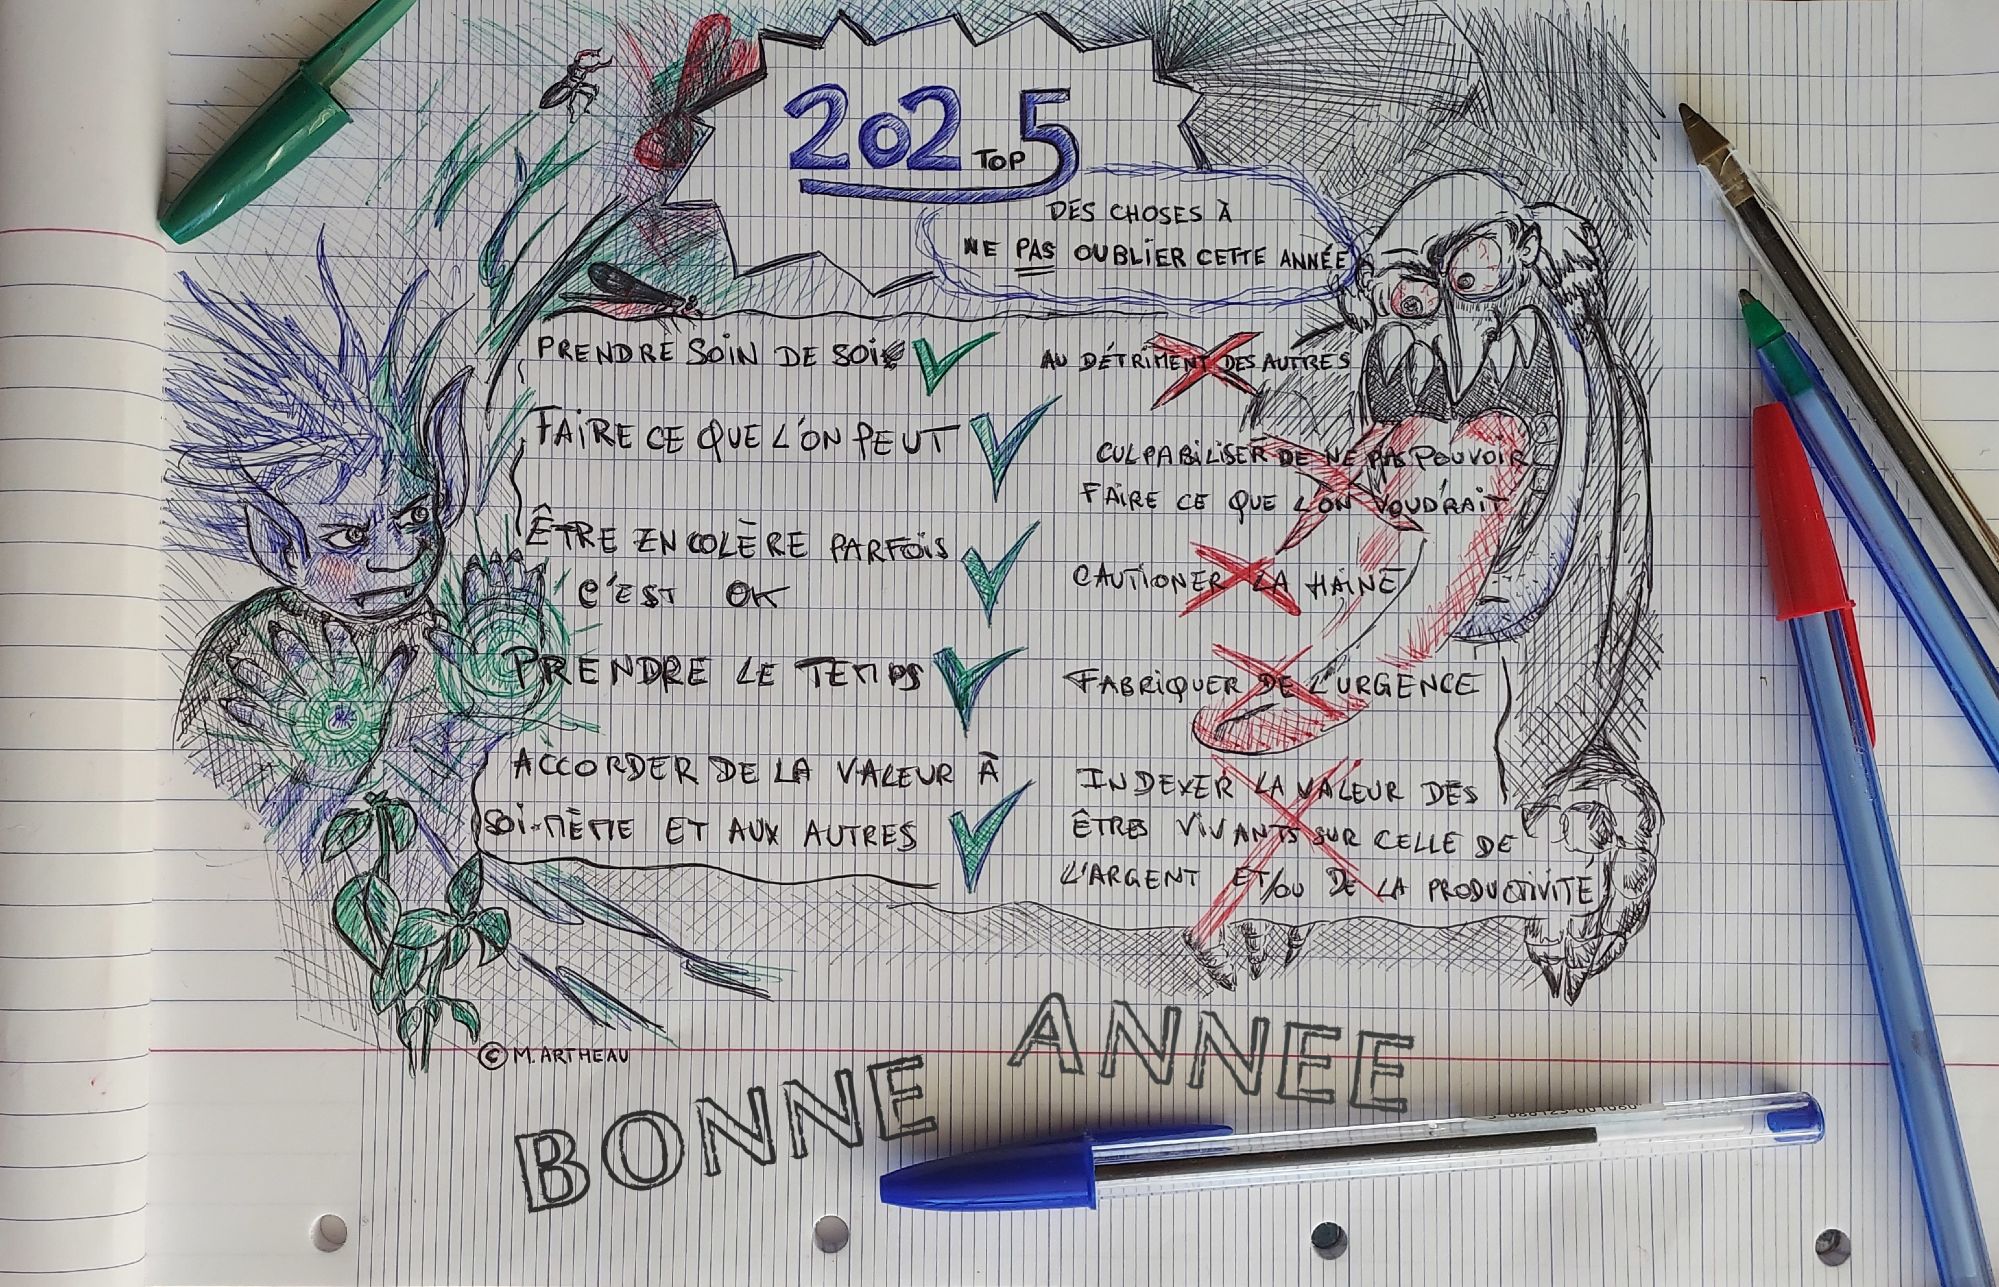 2025
TOP
DES CHOSES À
NE PAS OUBLIER CETTE ANNÉE
PRENDRE SOIN DE SOI
AU DÉTRIMENT DES AUTRES
FAIRE CE QUE L'ON PEUT
CULPABILISER DE NE PAS POUVOIR
FAIRE CE QUE L'ON VOUDRAIT
ÊTRE EN COLÈRE PARFOIS
C'EST OK
CAUTIONER LA HAINE
PRENDRE LE TEMPS
FABRIQUER DE L'URGENCE
ACCORDER DE LA VALEUR À
SOI-MÊME ET AUX AUTRES
INDEXER LA VALEUR DES
ÊTRES VIVANTS SUR CELLE DE
L'ARGENT ET/OU DE LA PRODUCTIVITÉ
© M. ARTHEAU
BONNE ANNEE